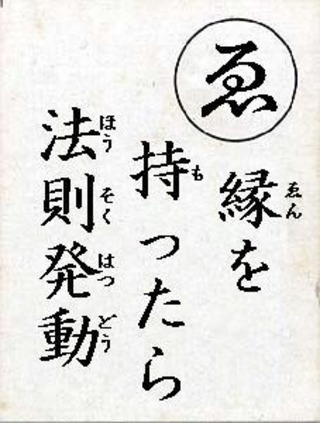 ゑ
縁を
ゑん
持ったら
も
法則発動
ほう そく はつ どう